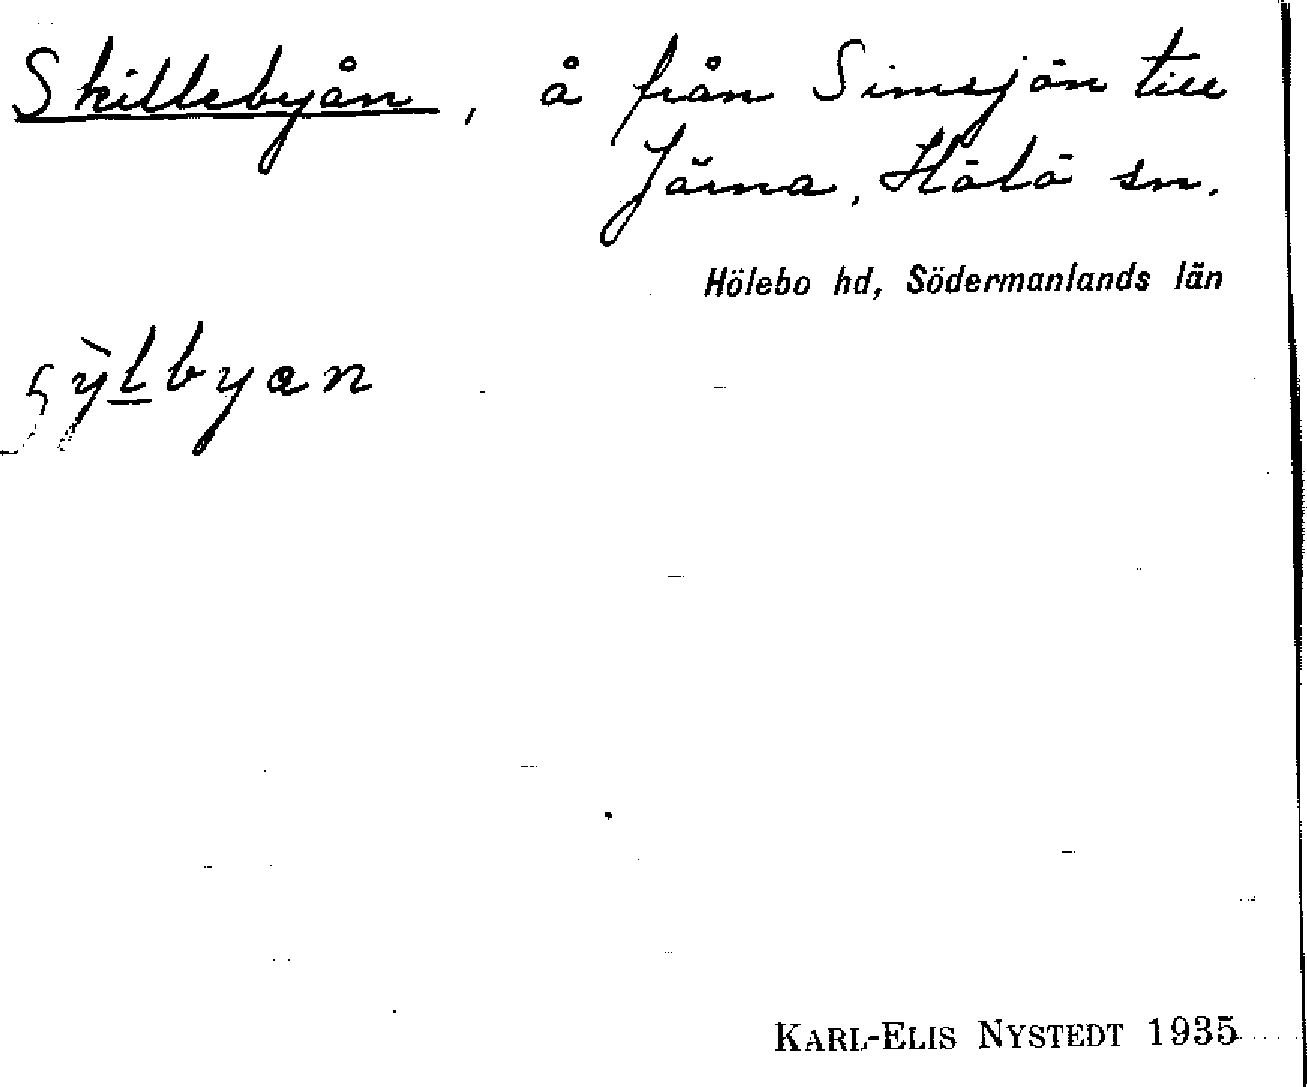 Skillebyån, å från Simsjön till
Järna, Hölö sn.
Hölebo hd, Södermanlands län
KARL-ELIS NYSTEDT 1935